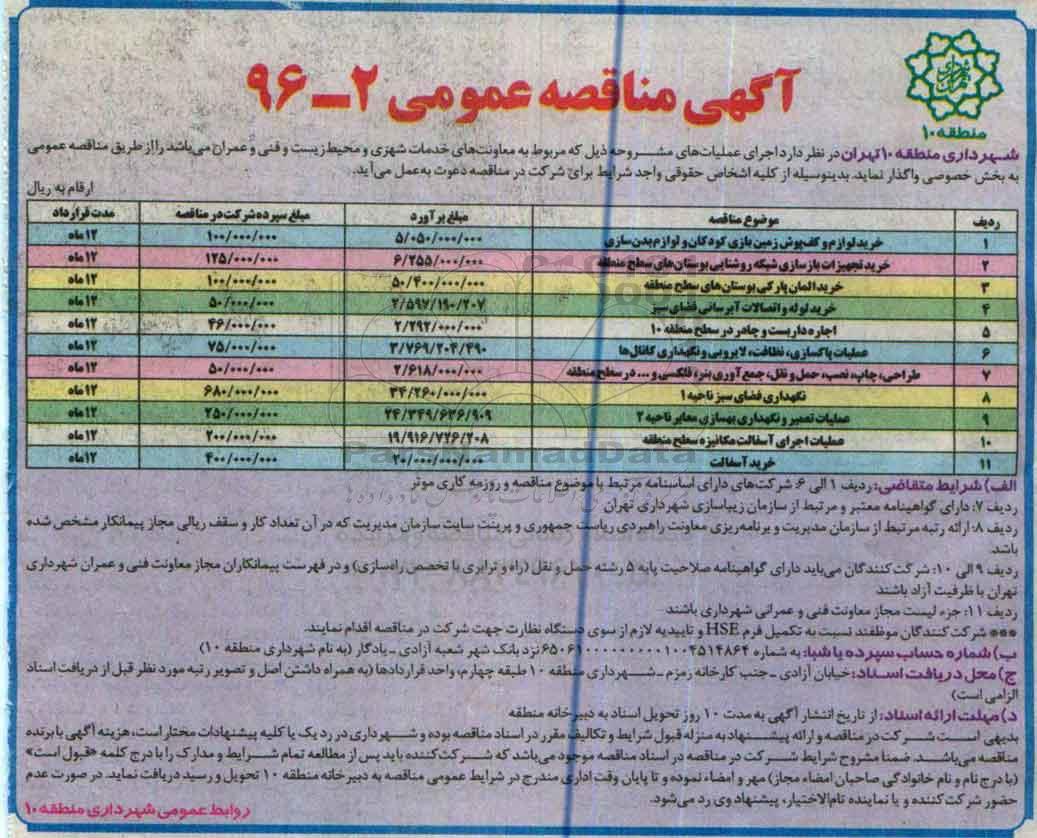 آگهی مناقصه عمومی ۲ـ۹۶
منطقه ۱۰
شهرداری منطقه ۱۰ تهران در نظر دارد اجرای عملیات‌های مشروحه ذیل که مربوط به معاونت‌های خدمات شهری و محیط زیست و فنی و عمران می‌باشد را از طریق مناقصه عمومی
به بخش خصوصی واگذار نماید. بدینوسیله از کلیه اشخاص حقوقی واجد شرایط برای شرکت در مناقصه دعوت به‌عمل می‌آید.
ارقام به ریال
ردیف موضوع مناقصه مبلغ برآورد مبلغ سپرده شرکت در مناقصه مدت قرارداد
۱ خرید لوازم و کف‌پوش زمین بازی کودکان و لوازم بدن‌سازی ۵/۰۵۰/۰۰۰/۰۰۰ ۱۰۰/۰۰۰/۰۰۰ ۱۲ماه
۲ خرید تجهیزات بازسازی شبکه روشنایی بوستان‌های سطح منطقه ۶/۲۵۵/۰۰۰/۰۰۰ ۱۲۵/۰۰۰/۰۰۰ ۱۲ماه
۳ خرید المان پارکی بوستان‌های سطح منطقه ۵۰/۴۰۰/۰۰۰/۰۰۰ ۱۰۰/۰۰۰/۰۰۰ ۱۲ماه
۴ خرید لوله و اتصالات آبرسانی فضای سبز ۲/۵۹۷/۱۹۰/۲۰۷ ۵۰/۰۰۰/۰۰۰ ۱۲ماه
۵ اجاره داربست و چادر در سطح منطقه ۱۰ ۲/۲۹۲/۰۰۰/۰۰۰ ۴۶/۰۰۰/۰۰۰ ۱۲ماه
۶ عملیات پاکسازی، نظافت، لایروبی و نگهداری کانال‌ها ۳/۷۶۹/۲۰۴/۴۹۰ ۷۵/۰۰۰/۰۰۰ ۱۲ماه
۷ طراحی، چاپ، نصب، حمل و نقل، جمع‌آوری بنر، فلکسی و ... در سطح منطقه ۲/۶۱۸/۰۰۰/۰۰۰ ۵۰/۰۰۰/۰۰۰ ۱۲ماه
۸ نگهداری فضای سبز ناحیه ۱ ۳۴/۲۶۰/۰۰۰/۰۰۰ ۶۸۰/۰۰۰/۰۰۰ ۱۲ماه
۹ عملیات تعمیر و نگهداری بهسازی معابر ناحیه ۲ ۲۴/۳۴۹/۶۳۶/۹۰۹ ۲۵۰/۰۰۰/۰۰۰ ۱۲ماه
۱۰ عملیات اجرای آسفالت مکانیزه سطح منطقه ۱۹/۹۱۶/۷۲۶/۲۰۸ ۲۰۰/۰۰۰/۰۰۰ ۱۲ماه
۱۱ خرید آسفالت ۲۰/۰۰۰/۰۰۰/۰۰۰ ۴۰۰/۰۰۰/۰۰۰ ۱۲ماه
ParsNamadData
الف) شرایط متقاضی: ردیف ۱ الی ۶: شرکت‌های دارای اساسنامه مرتبط با موضوع مناقصه و روزمه کاری موثر
ردیف ۷: دارای گواهینامه معتبر و مرتبط از سازمان زیباسازی شهرداری تهران
ردیف ۸: ارائه رتبه مرتبط از سازمان مدیریت و برنامه‌ریزی معاونت راهبردی ریاست جمهوری و پرینت سایت سازمان مدیریت که در آن تعداد کار و سقف ریالی مجاز پیمانکار مشخص شده
باشد.
ردیف ۹ الی ۱۰: شرکت‌کنندگان می‌باید دارای گواهینامه صلاحیت پایه ۵ رشته حمل و نقل (راه و ترابری با تخصص راه‌سازی) و در فهرست پیمانکاران مجاز معاونت فنی و عمران شهرداری
تهران با ظرفیت آزاد باشند
ردیف ۱۱: جزء لیست مجاز معاونت فنی و عمرانی شهرداری باشند
*** شرکت‌کنندگان موظفند نسبت به تکمیل فرم HSE و تاییدیه لازم از سوی دستگاه نظارت جهت شرکت در مناقصه اقدام نمایند.
ب) شماره حساب سپرده یا شبا: به شماره نزد بانک شهر شعبه آزادی ـ یادگار (به نام شهرداری منطقه ۱۰)
ج) محل دریافت اسناد: خیابان آزادی ـ جنب کارخانه زمزم ـ شهرداری منطقه ۱۰ طبقه چهارم، واحد قراردادها (به همراه داشتن اصل و تصویر رتبه مورد نظر قبل از دریافت اسناد
الزامی است)
د) مهلت ارائه اسناد: از تاریخ انتشار آگهی به مدت ۱۰ روز تحویل اسناد به دبیرخانه منطقه
بدیهی است شرکت در مناقصه و ارائه پیشنهاد به منزله قبول شرایط و تکالیف مقرر در اسناد مناقصه بوده و شهرداری در رد یک یا کلیه پیشنهادات مختار است، هزینه آگهی با برنده
مناقصه می‌باشد. ضمنا مشروح شرایط شرکت در مناقصه در اسناد مناقصه موجود می‌باشد که شرکت‌کننده باید پس از مطالعه تمام شرایط و مدارک را با درج کلمه «قبول است»
(با درج نام و نام خانوادگی صاحبان امضاء مجاز) مهر و امضاء نموده و تا پایان وقت اداری مندرج در شرایط عمومی مناقصه به دبیرخانه منطقه ۱۰ تحویل و رسید دریافت نماید. در صورت عدم
حضور شرکت‌کننده و یا نماینده تام‌الاختیار، پیشنهاد وی رد می‌شود.
روابط عمومی شهرداری منطقه ۱۰